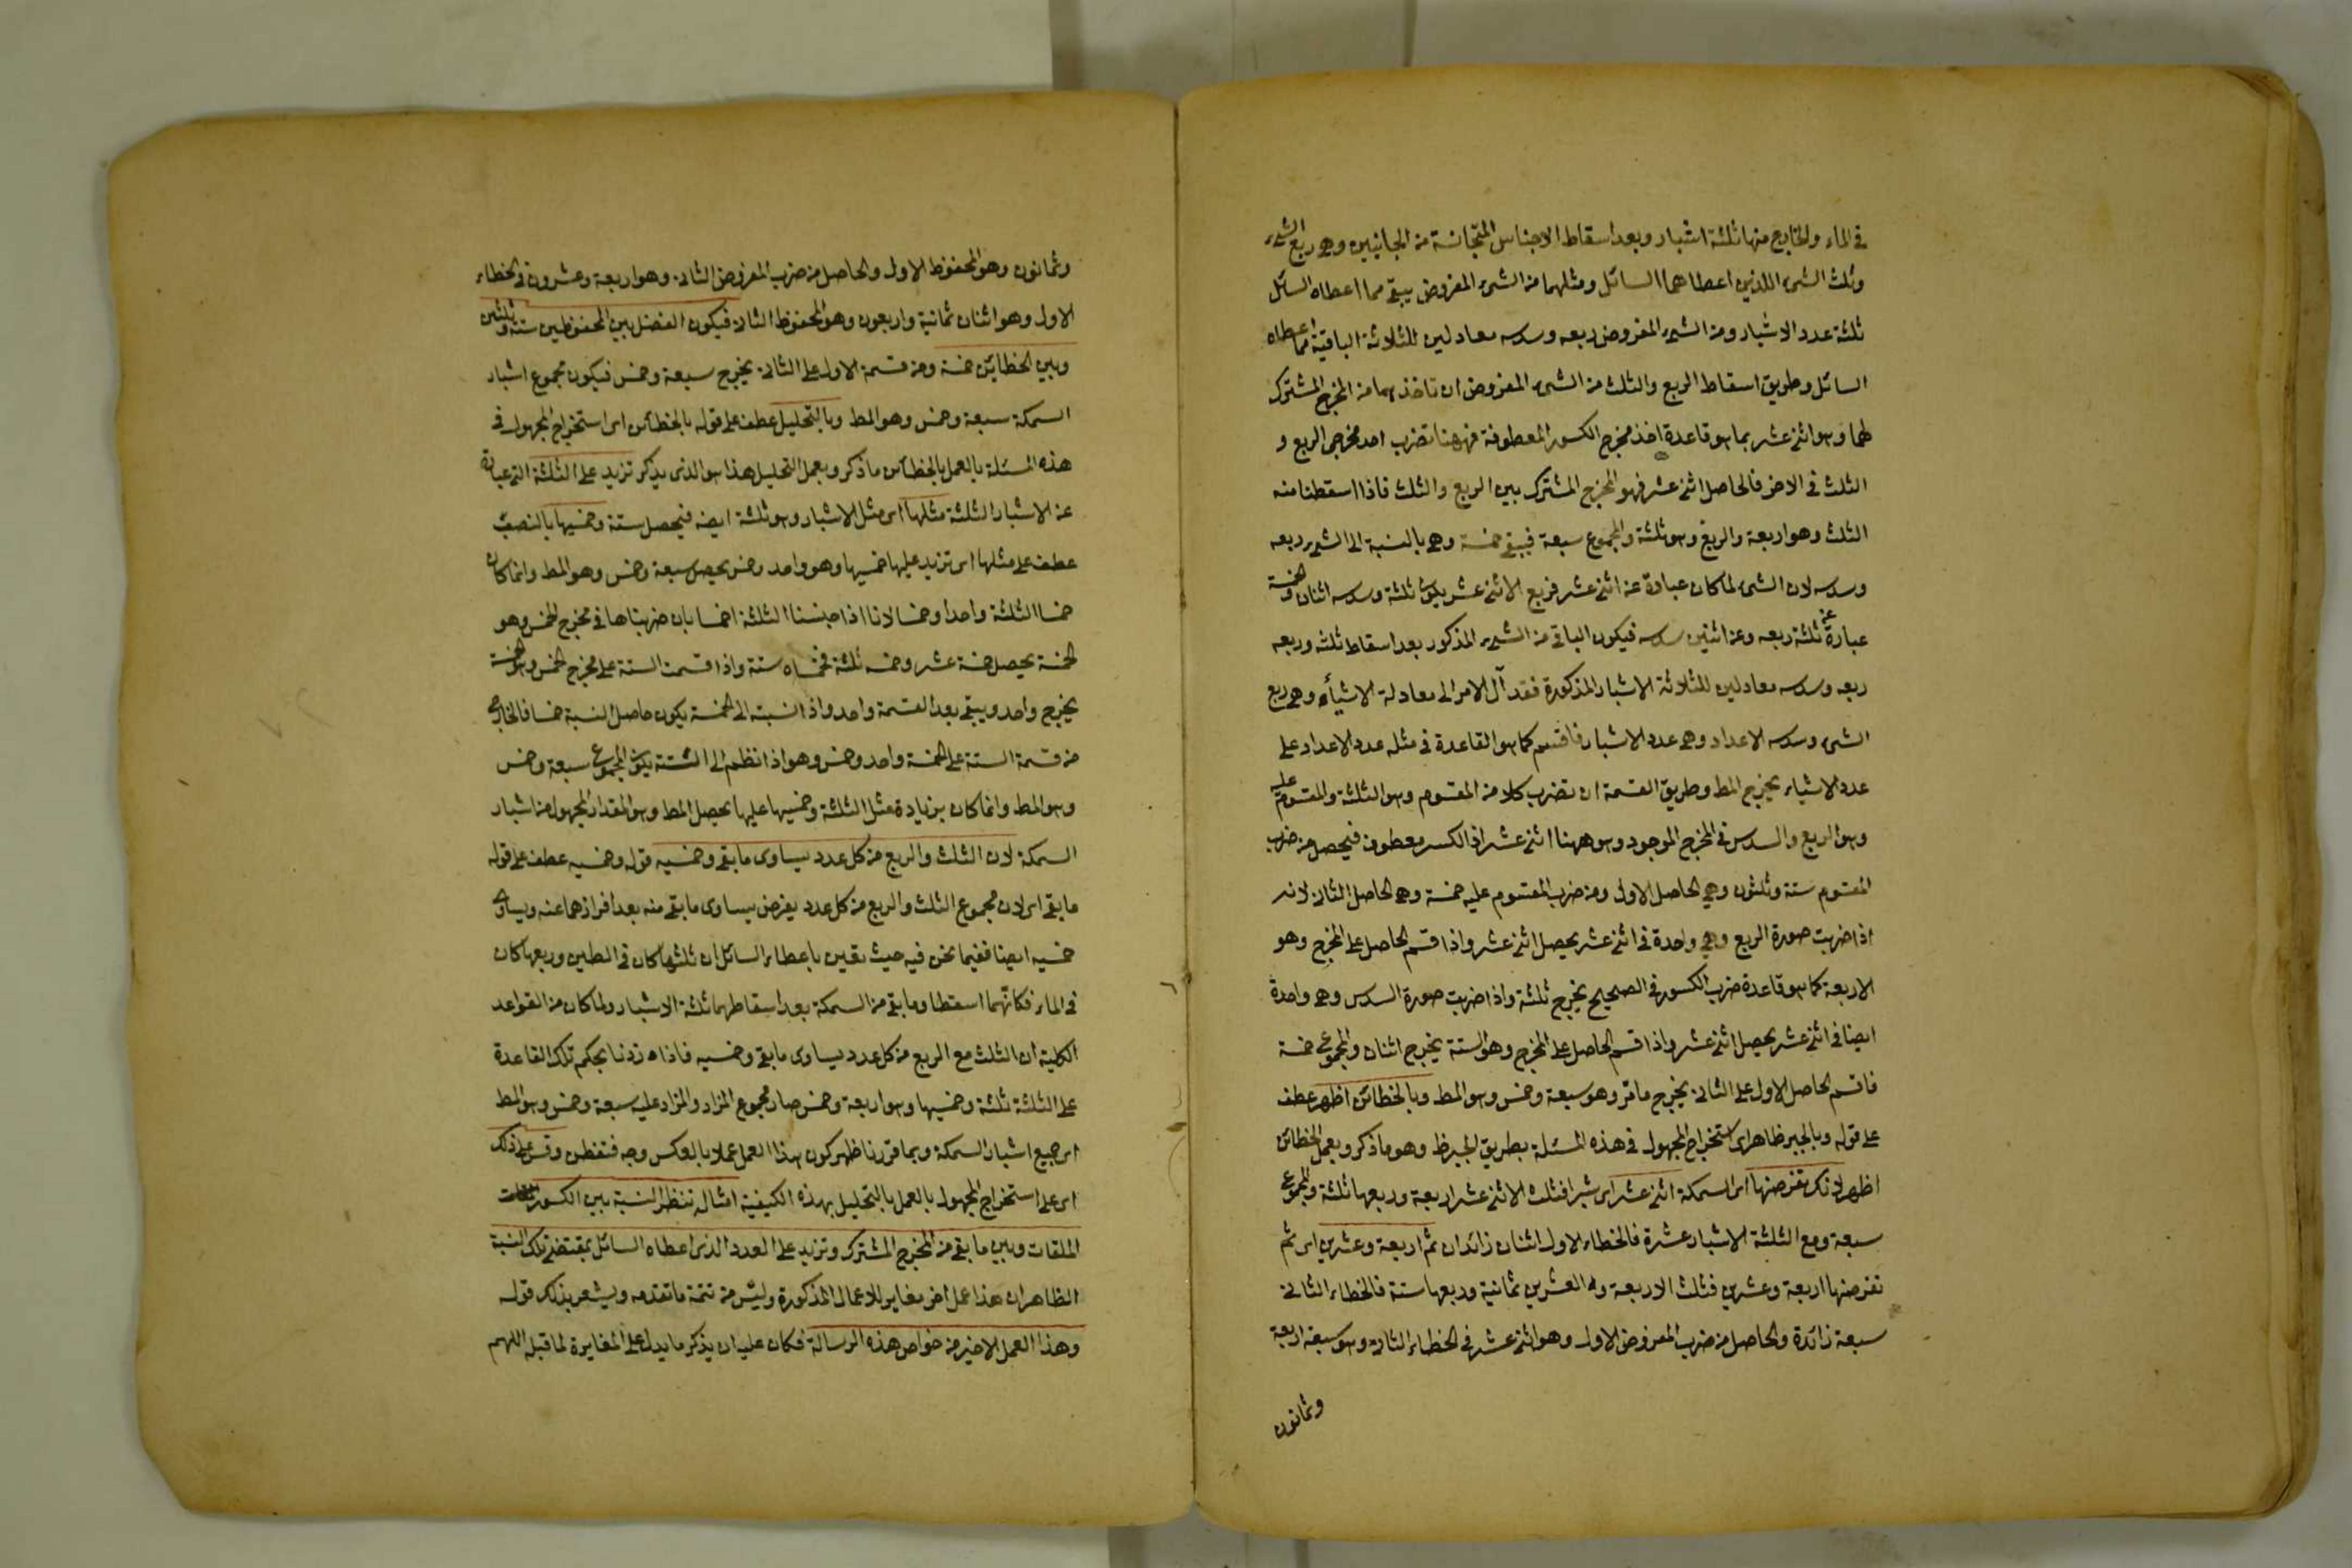 في الماء والخارج منها ثلثة اشبار وبعد اسقاط الاجناس المتجانسة من الجانبين وهى ربع الشىء
وثلث الشىء اللذين اعطاهما السائل ومثلهما من الشىء المفروض يبقى مما اعطاه السائل
ثلثة عدد الاشبار ومن الشىء المفروض ربعه وسدسه معادلين للثلاثة الباقية مما اعطاه
السائل وطريق اسقاط الربع والثلث من الشىء المفروض ان تاخذهما من المخرج المشترك
لهما وهو اثنى عشر بما هو قاعدة اخذ مخرج الكسور المعطوفة فههنا تضرب احد مخرجى الربع و
الثلث فى الاخر فالحاصل اثنى عشر فهو المخرج المشترك بين الربع والثلث فاذا اسقطنا منه
الثلث وهو اربعة والربع وهو ثلثة والمجموع سبعة فيبقى خمسة وهى بالنسبة الى الشىء ربعه
وسدسه لان الشىء لما كان عبارة عن اثنى عشر فربع الاثنى عشر يكون ثلثة وسدسه اثنان والخمسة
عبارة عن ثلثة ربعه وعن اثنين سدسه فيكون الباقى من الشىء المذكور بعد اسقاط ثلثه وربعه
ربعه وسدسه معادلين للثلاثة الاشبار المذكورة فقد آل الامر الى معادلة الاشياء وهى ربع
الشىء وسدسه الاعداد وهى عدد الاشبار فاقسم كما هو القاعدة فى مثله عدد الاعداد على
عدد الاشياء يخرج المط وطريق القسمة ان تضرب كلا من المقسوم وهو الثلثة والمقسوم عليه
وهو الربع والسدس فى المخرج الموجود وهو ههنا اثنى عشر اذ الكسر معطوف فيحصل من ضرب
المقسوم ستة وثلثون وهى الحاصل الاول ومن ضرب المقسوم عليه خمسة وهى الحاصل الثانى لانه
اذا ضربت صورة الربع وهى واحدة فى اثنى عشر يحصل اثنى عشر واذا قسم الحاصل على المخرج وهو
الاربعة كما هو قاعدة ضرب الكسور فى الصحيح يخرج ثلثة واذا ضربت صورة السدس وهى واحدة
ايضا فى اثنى عشر يحصل اثنى عشر واذا قسم الحاصل على المخرج وهو الستة يخرج اثنان والمجموع خمسة
فاقسم الحاصل الاول على الثانى يخرج مامر وهو سبعة وخمس وهو المط وبالخطائن اظهر عطف
على قوله وبالجبر ظاهر اى استخراج المجهول فى هذه المسئلة بطريق الجبر ظ وهو ما ذكر وبعمل الخطائن
اظهر لانك تفرضها اى السمكة اثنى عشر اى شبرا فثلث الاثنى عشر اربعة وربعها ثلثة والمجموع
سبعة ومع الثلثة الاشبار عشرة فالخطاء الاول اثنان زائدان ثم اربعة وعشرين اى ثم
تفرضها اربعة وعشرين فثلث الاربعة والعشرين ثمانية وربعها ستة فالخطاء الثانى
سبعة زائدة والحاصل من ضرب المفروض الاول وهو اثنى عشر فى الخطاء الثانى وهو سبعة اربعة
وثمانون
وثمانون وهو المحفوظ الاول والحاصل من ضرب المفروض الثانى وهو اربعة وعشرون فى الخطاء
الاول وهو اثنان ثمانية واربعون وهو المحفوظ الثانى فيكون الفضل بين المحفوظين ستة وثلثين
وبين الخطائن خمسة ومن قسمة الاول على الثانى يخرج سبعة وخمس فيكون مجموع اشبار
السمكة سبعة وخمس وهو المط وبالتحليل عطف على قوله بالخطائن اى استخراج المجهول فى
هذه المسئلة بالعمل بالخطائن ما ذكر وبعمل التحليل هذا هو الذى يذكر تزيد على الثلثة التى عبارة
عن الاشبار الثلثة مثلها اى مثل الاشبار وهو ثلثة ايضه فيحصل ستة وخمسيها بالنصب
عطف على مثلها اى تزيد عليها خمسيها وهو واحد وخمس يحصل سبعة وخمس وهو المط وانما كان
خمسا الثلثة واحدا وخمسا لانا اذا جنسنا الثلثة اخماسا بان ضربناها فى مخرج الخمس وهو
الخمسة يحصل خمسة عشر وخمسه ثلثة فخمساه ستة واذا قسمت الستة على مخرج الخمس وهو الخمسة
يخرج واحد ويبقى بعد القسمة واحد واذا نسبته الى الخمسة يكون حاصل النسبة خمسا فالخارج
من قسمة الستة على الخمسة واحد وخمس وهو اذا انظم الى الستة يكون المجموع سبعة وخمس
وهو المط وانما كان بزيادة مثل الثلثة وخمسيها عليها يحصل المط وهو المقدار المجهول من اشبار
السمكة لان الثلث والربع من كل عدد يساوى ما بقى وخمسيه قوله وخمسيه عطف على قوله
ما بقى اى لان مجموع الثلث والربع من كل عدد يفرض يساوى ما بقى منه بعد افرازهما عنه ويساوى
خمسيه ايضا ففيما نحن فيه حيث تعين باعطاء السائل ان ثلثها كان فى الطين وربعها كان
فى الماء فكانهما اسقطا وما بقى من السمكة بعد اسقاطهما ثلثة الاشبار ولما كان من القواعد
الكلية ان الثلث مع الربع من كل عدد يساوى ما بقى وخمسيه فاذا زدنا بحكم تلك القاعدة
على الثلثة ثلثة وخمسيها وهو اربعة وخمس صار مجموع المزاد والمزاد عليه سبعة وخمس وهو المط
اى جميع اشبار السمكة وبما قررنا ظهر كون هذا العمل عملا بالعكس وجه فتفطن وقس على ذلك
اى على استخراج المجهول بالعمل بالتحليل بهذه الكيفية امثاله تنظر النسبة بين الكسور
الملقات وبين ما بقى من المخرج المشترك وتزيد على العدد الذى اعطاه السائل بمقتضى تلك النسبة
الظاهر ان هذا عمل اخر مغاير للاعمال المذكورة وليس من تتمة ما تقدمه ويشعر بذلك قوله
وهذا العمل الاخير من خواص هذه الرسالة فكان عليه ان يذكر ما يدل على المغايرة لما قبله اللهم